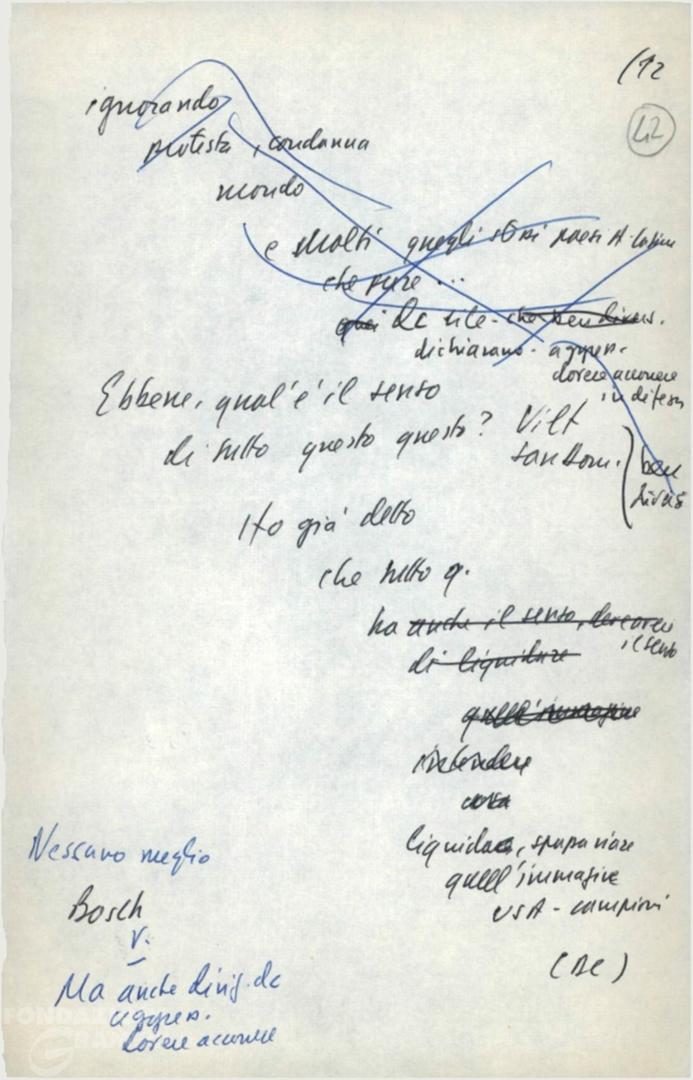 (12
42
ignorando
protesta, condanna
mondo
e molti quegli stessi paesi A. latina
che pure ...
quei dc cile - che ben divers.
dichiarano - aggres.
dovere accorrere
in difesa
Ebbene, qual'è il senso
di tutto questo questo? Viet
San Dom.
ben
divers
Ho già detto
che tutto q.
ha anche il senso,
il senso
di liquidare
quell'immagine
liquidare,
quell'immagine
USA - campioni
(DC)
Nessuno meglio
Bosch
V.
Ma anche dirig. dc
aggres.
dovere accorrere
FONDAZ